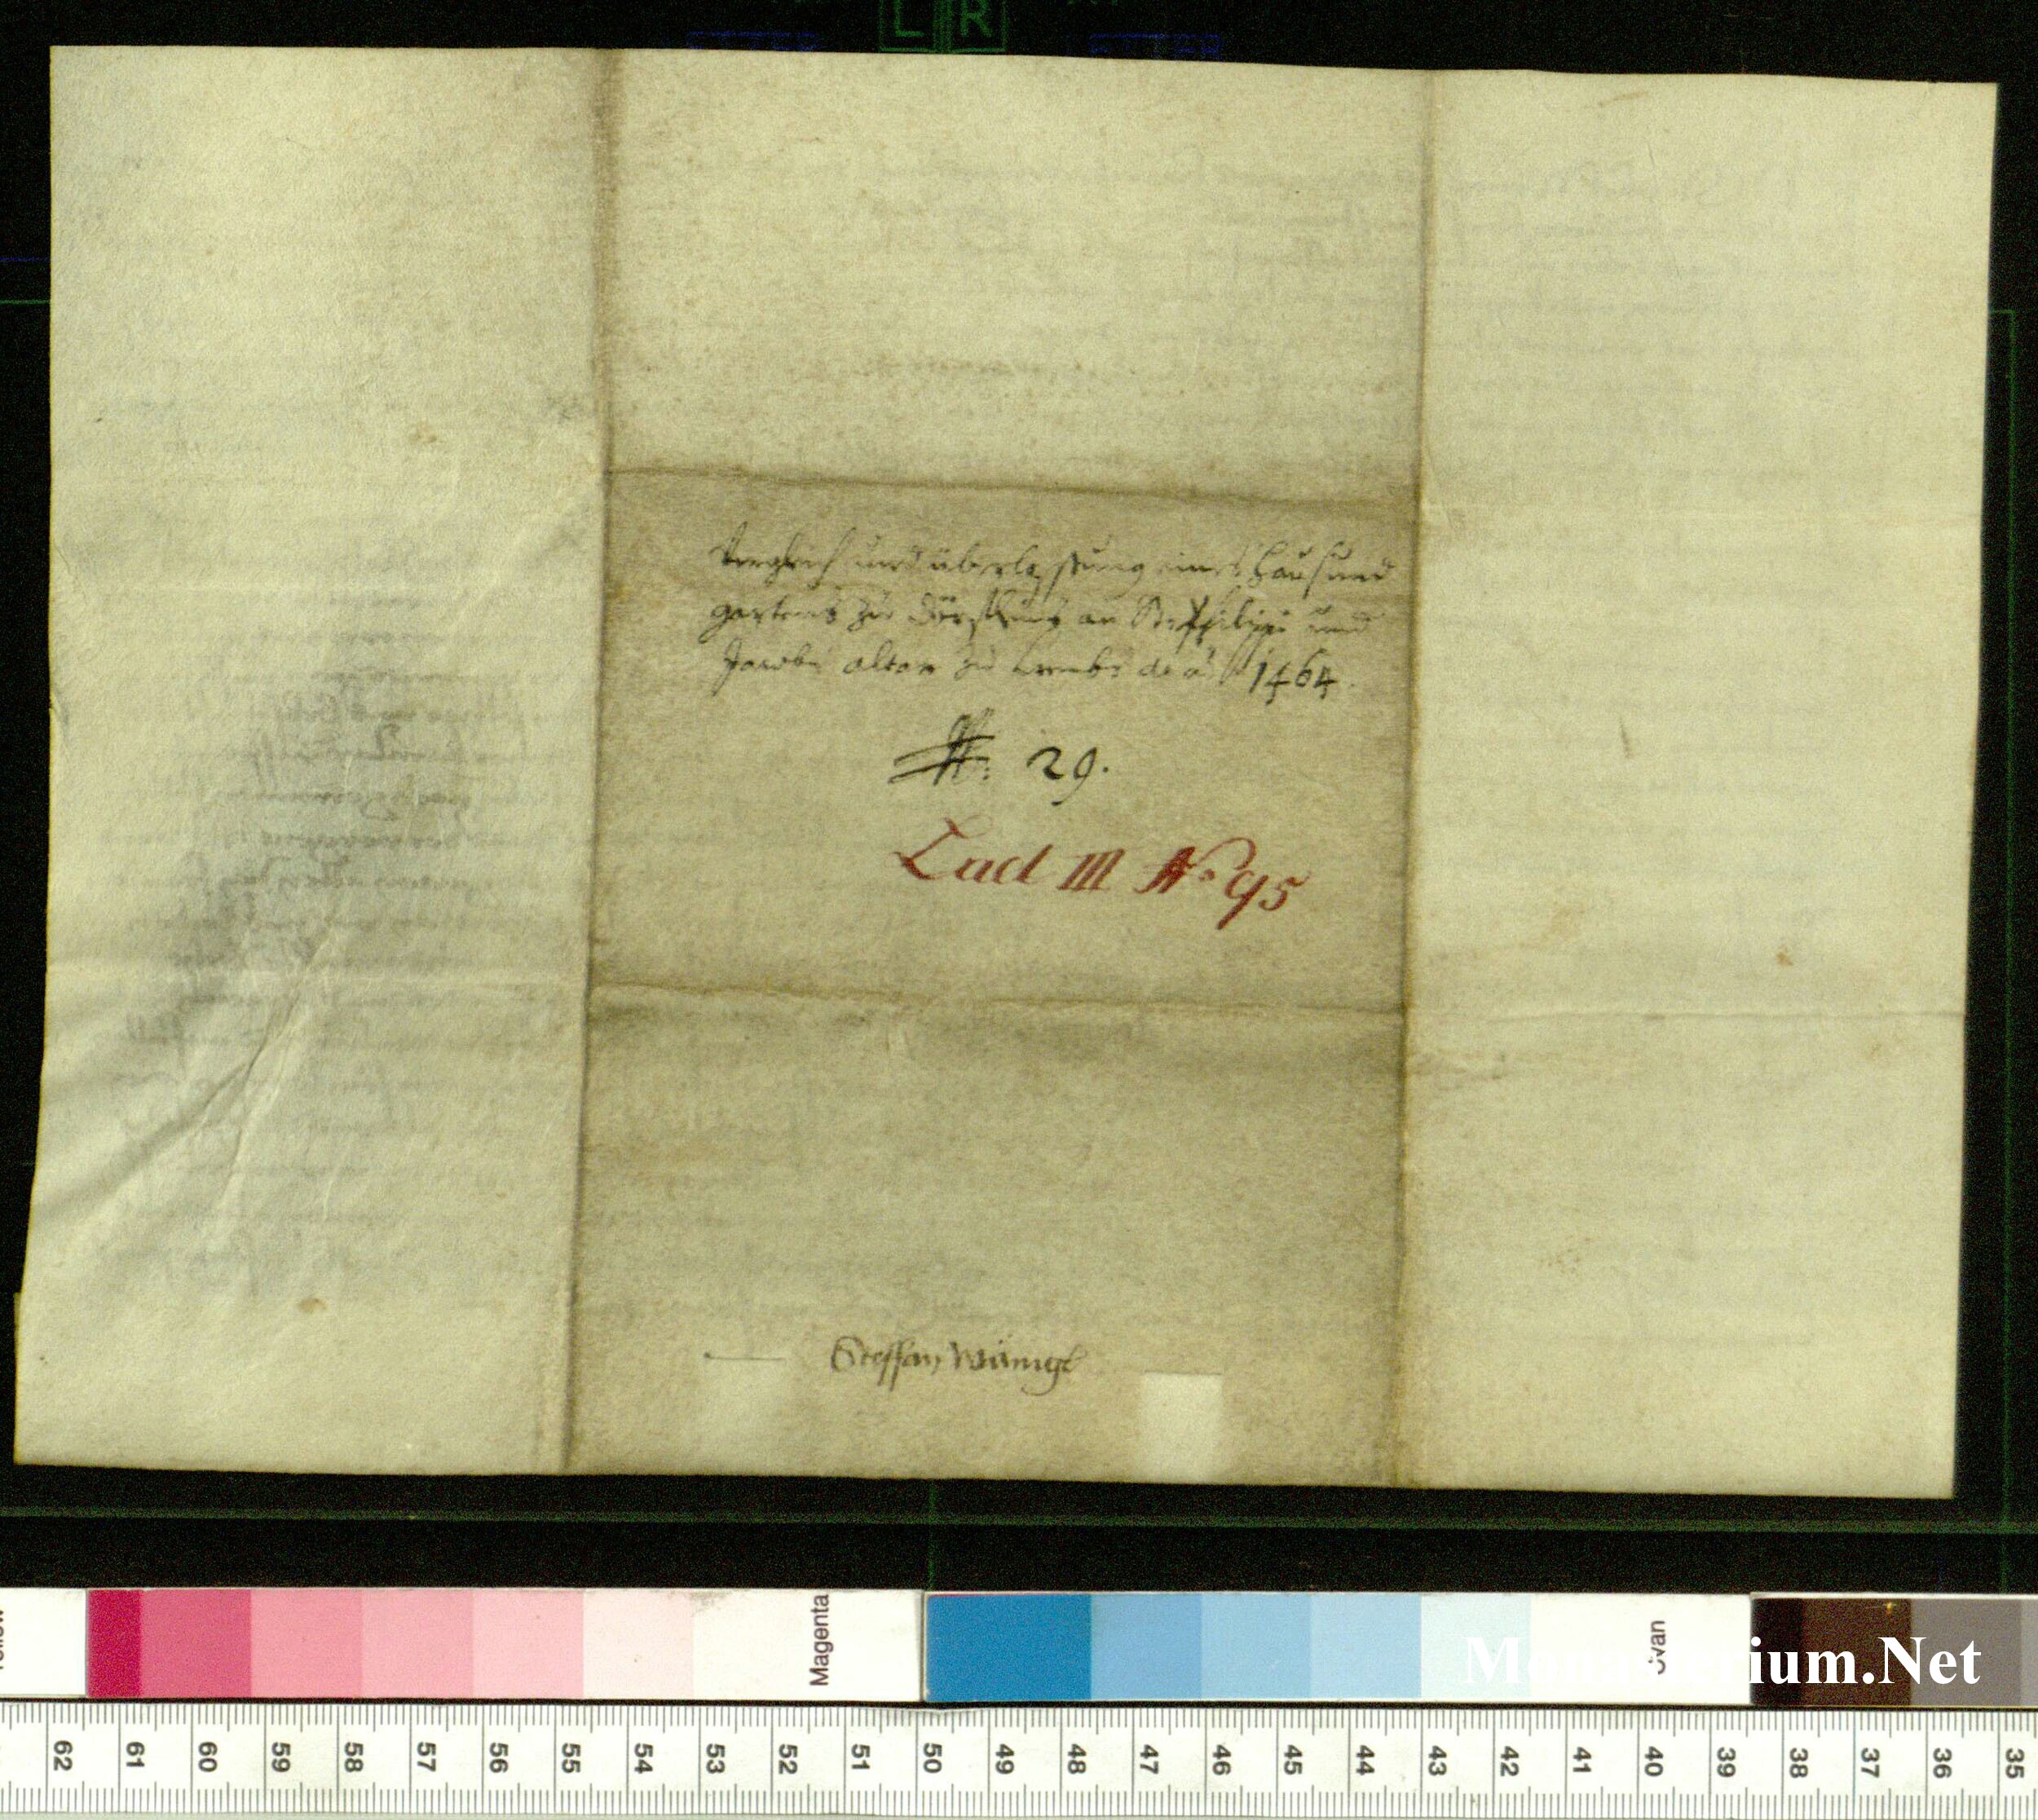 L R
Vergleich und überlassung eines hauß und
gartens zu an St. Philippi und
Jacobi altar zu Crembs de ao 1464.
N: 29.
Lad III No 95
Steffan
Magenta
Cyan
Monasterium.Net
62 61 60 59 58 57 56 55 54 53 52 51 50 49 48 47 46 45 44 43 42 41 40 39 38 37 36 35